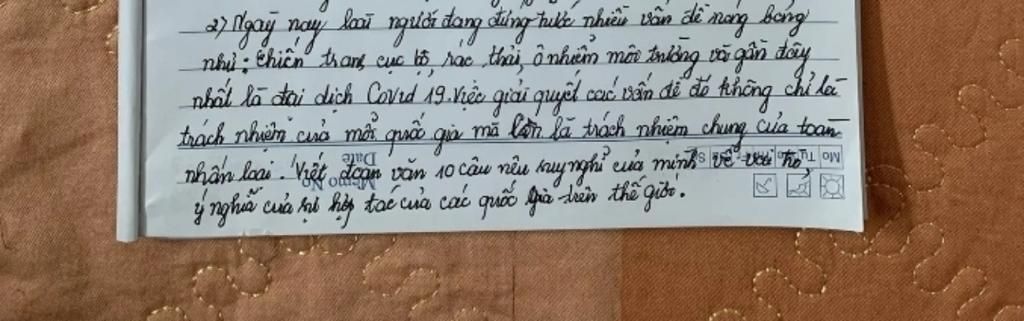 2) Ngaỳ nay loaì người đang đứng trước nhiều vấn đề nóng bỏng
như: chiến tranh cục bộ, rác thải, ô nhiễm môi trường và gần đây
nhất là đại dịch Covid 19. Việc giải quyết các vấn đề đó không chỉ là
trách nhiệm của mỗi quốc gia mà còn là trách nhiệm chung của toàn
nhân loại. Viết đoạn văn 10 câu nêu suy nghĩ của mình về vai trò
ý nghĩa của sự hợp tác của các quốc gia trên thế giới.
Memo No
Date